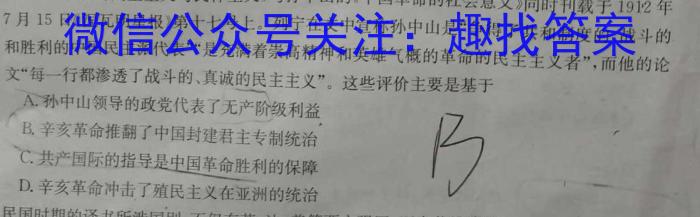 的社会意义》同时刊载于1912年
微信公众号关注：趣找答案
7月15日
和胜利的
是充满着崇高精神和英雄气概的革命的民主主义者”，而他的论
文“每一行都渗透了战斗的、真诚的民主主义”。这些评价主要是基于
A.孙中山领导的政党代表了无产阶级利益
B.辛亥革命推翻了中国封建君主专制统治
C.共产国际的指导是中国革命胜利的保障
D.辛亥革命冲击了殖民主义在亚洲的统治
B